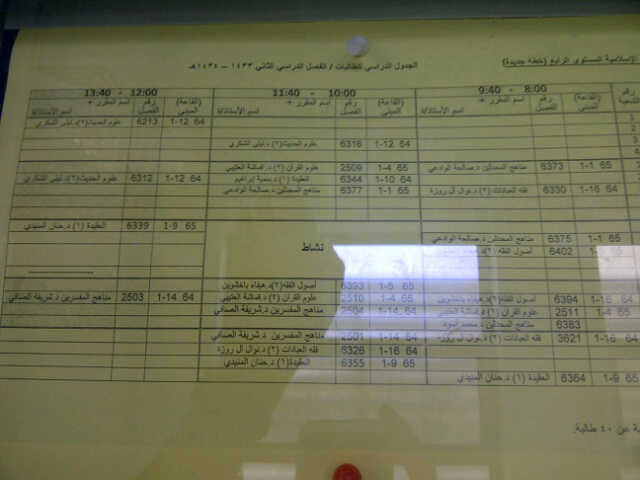 الإسلامية المستوى الرابع (خطة جديدة) الجدول الدراسي للطالبات / الفصل الدراسي الثاني ١٤٣٣ - ١٤٣٤هـ
8:00 - 9:40 10:00 - 11:40 12:00 - 13:40
رقم (القاعة) المبنى رقم الفصل اسم المقرر + اسم الأستاذة (القاعة) المبنى رقم الفصل اسم المقرر + اسم الأستاذة (القاعة) المبنى رقم الفصل اسم المقرر + اسم الأستاذة
64 1-12 6213 علوم الحديث(٢)د.ليلى الشكري
64 1-12 6316 علوم الحديث(٢)د.ليلى الشكري
65 1-1 6373 مناهج المحدثين د.صالحة الوادعي 65 1-4 2509 علوم القرآن (٢)
64 1-16 6330 فقه العبادات (٢) د.نوال آل روزة 64 1-10 6344 العقيدة (١) د.سمية إبراهيم 64 1-12 6312 علوم الحديث(٢)د.ليلى الشكري
65 1-1 6377 مناهج المحدثين د.صالحة الوادعي
65 1-9 6339 العقيدة (١) د.حنان المنيدي
65 1-1 6375 مناهج المحدثين د.صالحة الوادعي نشاط
6402 أصول الفقه
65 1-5 6393 أصول الفقه(٢)د.هيفاء باخشوين
64 1-16 6394 أصول الفقه(٢)د.هيفاء باخشوين 65 1-4 2510 علوم القرآن (٢) 64 1-14 2503 مناهج المفسرين د.شريفة الصافي
65 1-4 2511 علوم القرآن (٢) 64 1-14 2504 مناهج المفسرين د.شريفة الصافي
6383 مناهج المحدثين د.محمد
64 1-16 3621 فقه العبادات (٢) د.نوال آل روزة 64 1-14 2501 مناهج المفسرين د.شريفة الصافي
64 1-16 6326 فقه العبادات (٢) د.نوال آل روزة
65 1-9 6364 العقيدة (١) د.حنان المنيدي 65 1-9 6355 العقيدة(١) د.حنان المنيدي
عن ٤٠ طالبة.